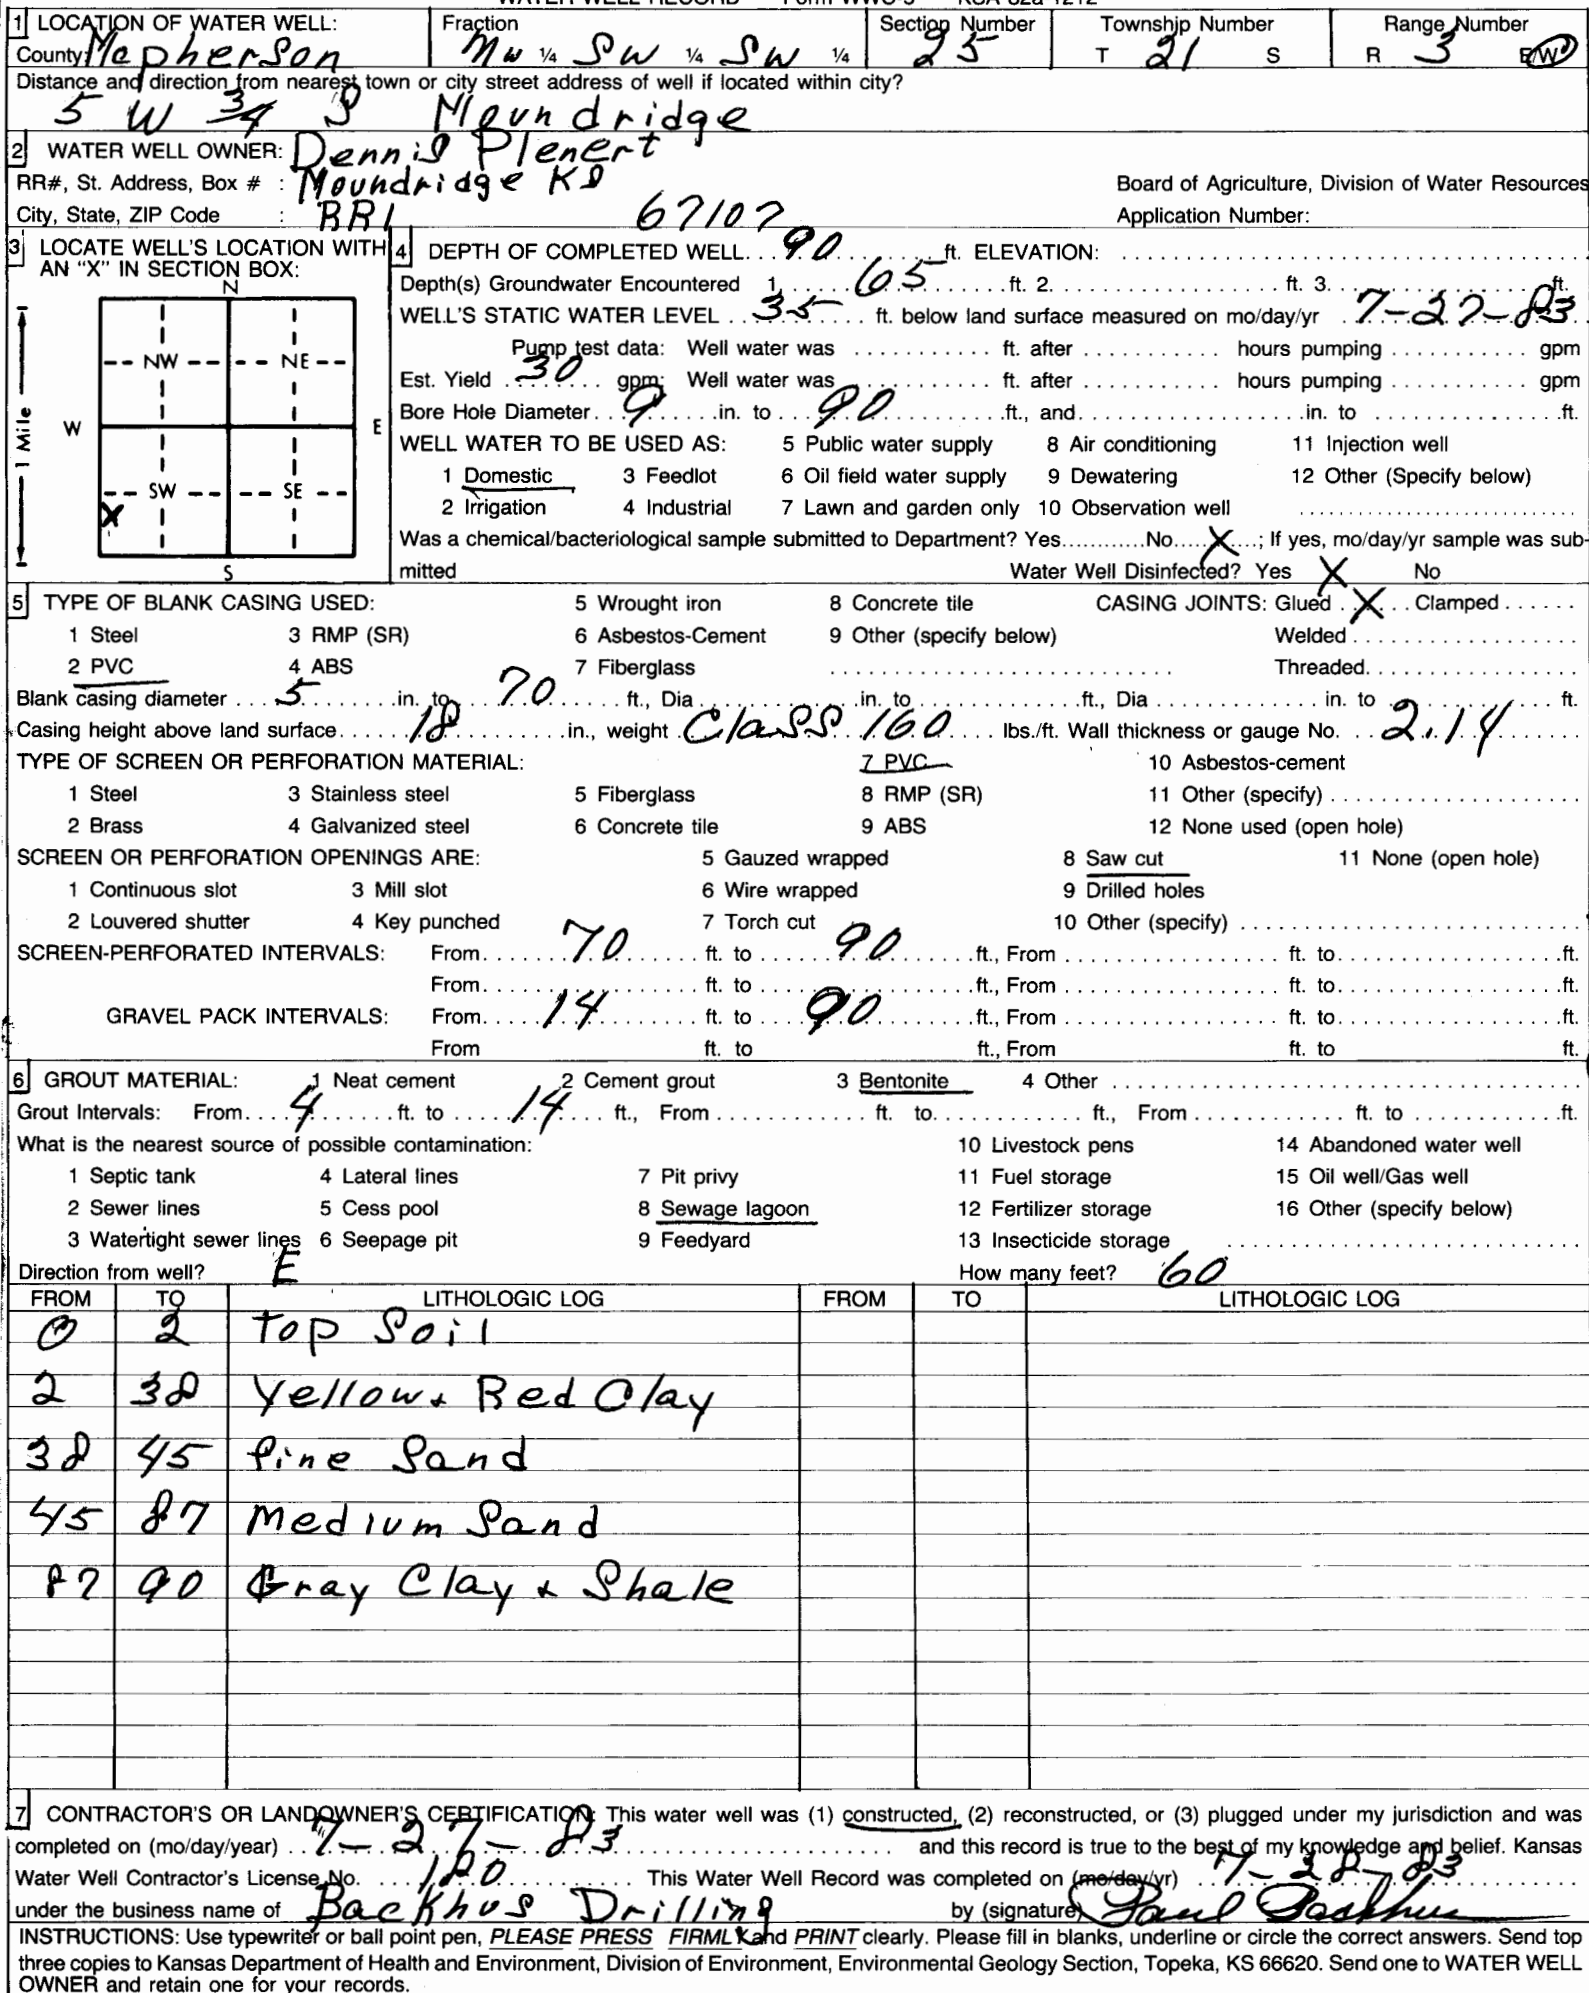 WATER WELL RECORD Form WWC-5 KSA 82a-1212
1 LOCATION OF WATER WELL: Fraction Section Number Township Number Range Number
County: Mcpherson NW ¼ SW ¼ SW ¼ 25 T 21 S R 3 E/W
Distance and direction from nearest town or city street address of well if located within city?
5 W 3/4 S Moundridge
2 WATER WELL OWNER: Dennis Plenert
RR#, St. Address, Box # : Moundridge KS Board of Agriculture, Division of Water Resources
City, State, ZIP Code : RR1 67107 Application Number:
3 LOCATE WELL'S LOCATION WITH AN "X" IN SECTION BOX:
N
NW NE
W E
1 Mile
SW SE
X
S
4 DEPTH OF COMPLETED WELL... 90 ...ft. ELEVATION: ...
Depth(s) Groundwater Encountered 1... 65 ...ft. 2... ft. 3... ft.
WELL'S STATIC WATER LEVEL ... 35 ... ft. below land surface measured on mo/day/yr 7-27-83
Pump test data: Well water was ... ft. after ... hours pumping ... gpm
Est. Yield ... 30 ... gpm: Well water was ... ft. after ... hours pumping ... gpm
Bore Hole Diameter... 9 ...in. to ... 90 ...ft., and ...in. to ...ft.
WELL WATER TO BE USED AS: 5 Public water supply 8 Air conditioning 11 Injection well
1 Domestic 3 Feedlot 6 Oil field water supply 9 Dewatering 12 Other (Specify below)
2 Irrigation 4 Industrial 7 Lawn and garden only 10 Observation well ...
Was a chemical/bacteriological sample submitted to Department? Yes...No... X ...; If yes, mo/day/yr sample was sub-
mitted Water Well Disinfected? Yes X No
5 TYPE OF BLANK CASING USED: 5 Wrought iron 8 Concrete tile CASING JOINTS: Glued . X . Clamped ...
1 Steel 3 RMP (SR) 6 Asbestos-Cement 9 Other (specify below) Welded ...
2 PVC 4 ABS 7 Fiberglass ... Threaded...
Blank casing diameter ... 5 ...in. to 70 ft., Dia ...in. to ...ft., Dia ... in. to ... ft.
Casing height above land surface... 18 ...in., weight Class 160 lbs./ft. Wall thickness or gauge No. .. 2.14
TYPE OF SCREEN OR PERFORATION MATERIAL: 7 PVC 10 Asbestos-cement
1 Steel 3 Stainless steel 5 Fiberglass 8 RMP (SR) 11 Other (specify) ...
2 Brass 4 Galvanized steel 6 Concrete tile 9 ABS 12 None used (open hole)
SCREEN OR PERFORATION OPENINGS ARE: 5 Gauzed wrapped 8 Saw cut 11 None (open hole)
1 Continuous slot 3 Mill slot 6 Wire wrapped 9 Drilled holes
2 Louvered shutter 4 Key punched 7 Torch cut 10 Other (specify) ...
SCREEN-PERFORATED INTERVALS: From... 70 ... ft. to ... 90 ...ft., From ... ft. to...ft.
From... ft. to ...ft., From ... ft. to...ft.
GRAVEL PACK INTERVALS: From... 14 ... ft. to ... 90 ...ft., From ... ft. to...ft.
From ft. to ft., From ft. to ft.
6 GROUT MATERIAL: 1 Neat cement 2 Cement grout 3 Bentonite 4 Other ...
Grout Intervals: From... 4 ...ft. to ... 14 ... ft., From ... ft. to... ft., From ... ft. to ...ft.
What is the nearest source of possible contamination: 10 Livestock pens 14 Abandoned water well
1 Septic tank 4 Lateral lines 7 Pit privy 11 Fuel storage 15 Oil well/Gas well
2 Sewer lines 5 Cess pool 8 Sewage lagoon 12 Fertilizer storage 16 Other (specify below)
3 Watertight sewer lines 6 Seepage pit 9 Feedyard 13 Insecticide storage ...
Direction from well? E How many feet? 60
FROM TO LITHOLOGIC LOG FROM TO LITHOLOGIC LOG
0 2 Top Soil
2 38 Yellow + Red Clay
38 45 fine Sand
45 87 Medium Sand
87 90 Gray Clay + Shale
7 CONTRACTOR'S OR LANDOWNER'S CERTIFICATION: This water well was (1) constructed, (2) reconstructed, or (3) plugged under my jurisdiction and was
completed on (mo/day/year) ... 7-27-83 ... and this record is true to the best of my knowledge and belief. Kansas
Water Well Contractor's License No. ... 180 ... This Water Well Record was completed on (mo/day/yr) ... 7-28-83
under the business name of Backhus Drilling by (signature) Paul Backhus
INSTRUCTIONS: Use typewriter or ball point pen, PLEASE PRESS FIRMLY and PRINT clearly. Please fill in blanks, underline or circle the correct answers. Send top
three copies to Kansas Department of Health and Environment, Division of Environment, Environmental Geology Section, Topeka, KS 66620. Send one to WATER WELL
OWNER and retain one for your records.